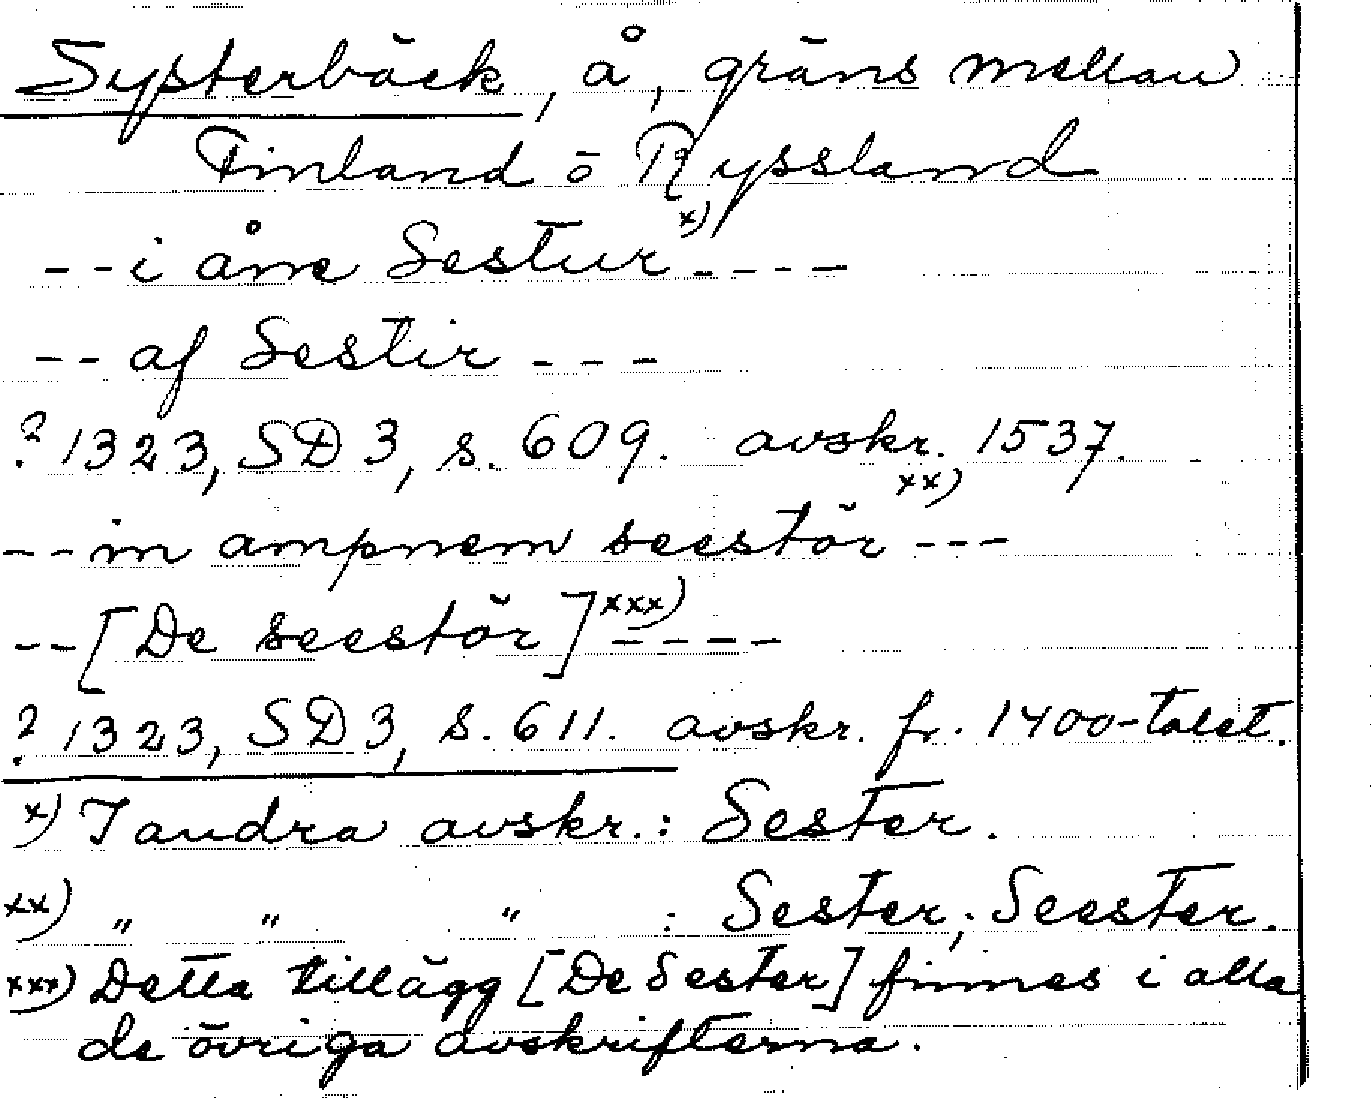 Systerbäck, å, gräns mellan
Finland o Ryssland
-- i åne Sestur x) ----
-- af Sestir ---
? 1323, SD 3, s. 609. avskr. 1537.
-- in ampnem seestör xx) ---
-- [De seestör] xxx) ----
? 1323, SD 3, s. 611. avskr. fr. 1400-talet.
x) I andra avskr.: Sester.
xx) " " " : Sester; Seester.
xxx) Detta tillägg [De Sester] finnes i alla
de övriga avskrifterna.